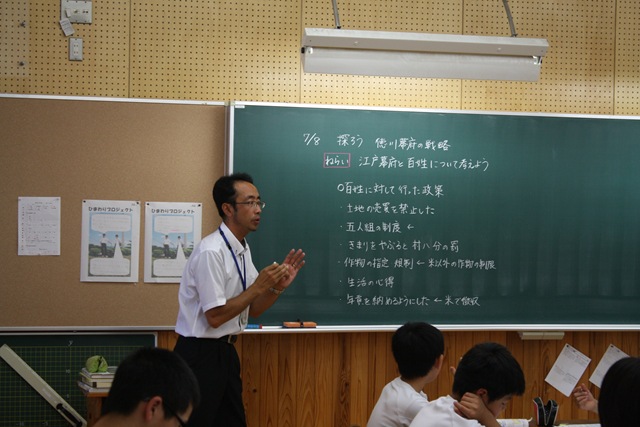 ひまわりプロジェクト
ひまわりプロジェクト
7/8 探ろう 徳川幕府の戦略
ねらい 江戸幕府と百姓について考えよう
○百姓に対して行った政策
・土地の売買を禁止した
・五人組の制度 ←
・きまりをやぶると 村八分の罰
・作物の指定 規制 ← 米以外の作物の制限
・生活の心得
・年貢を納めるようにした ← 米で徴収